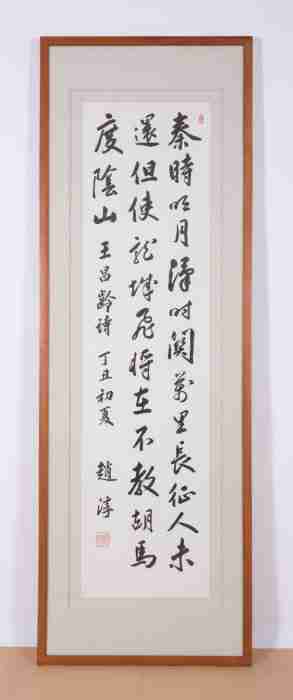 秦時明月漢时関萬里長征人未
還但使龍城飛將在不教胡馬
度陰山 王昌龄诗 丁丑初夏 趙淳